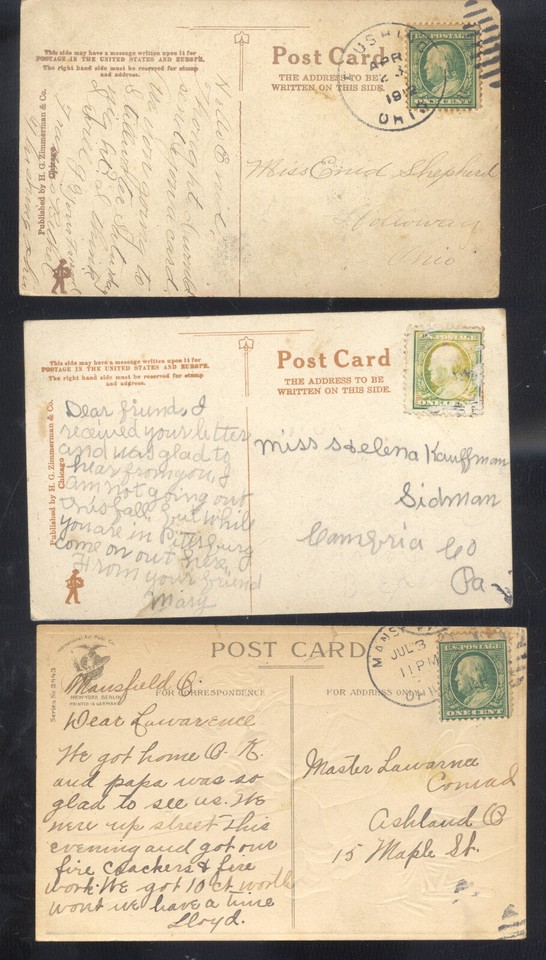 This side may have a message written upon it for
POSTAGE IN THE UNITED STATES AND EUROPE.
The right hand side must be reserved for stamp
and address.
Post Card
THE ADDRESS TO BE
WRITTEN ON THIS SIDE.
APR
1912
OHIO
U.S. POSTAGE
ONE CENT
Published by H. G. Zimmerman & Co.
Chicago
Hello E
thought I would
send a card.
going to
Miss Enid Shepherd
Holloway
Ohio
This side may have a message written upon it for
POSTAGE IN THE UNITED STATES AND EUROPE.
The right hand side must be reserved for stamp
and address.
Post Card
THE ADDRESS TO BE
WRITTEN ON THIS SIDE.
U.S. POSTAGE
ONE CENT
Published by H. G. Zimmerman & Co.
Chicago
Dear friends, I
received your letter
and was glad to
hear from you, I
am not going out
this fall. but while
you are in Pittsburg
come on out here,
From your friend
Mary
Miss Helena Kauffman
Sidman
Cambria Co
Pa
POST CARD
International Art Publ. Co.
NEW YORK BERLIN
PRINTED IN GERMANY
Series No 2443
FOR CORRESPONDENCE
FOR ADDRESS ONLY
JUL 3
11 PM
OHIO
U.S. POSTAGE
ONE CENT
Mansfield O.
Dear Lawarence
We got home O. K.
and papa was so
glad to see us. We
were up street this
evening and got our
fire crackers & fire
work. We got 10 ct. worth
wont we have a time
Lloyd.
Master Lawarnce
Conrad
Ashland O
15 Maple St.